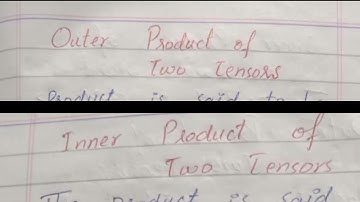 Outer Product of
Two Tensors
Product is said to be
Inner Product of
Two Tensors
The product is said